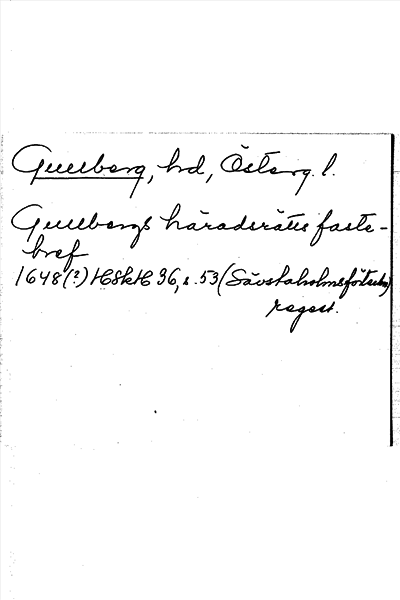 Gullberg, hd, Österg. l.
Gullbergs häradsrätts faste-
bref
1648(?) HSkH 36, s. 53 (Sävstaholmsförteckn)
regest.